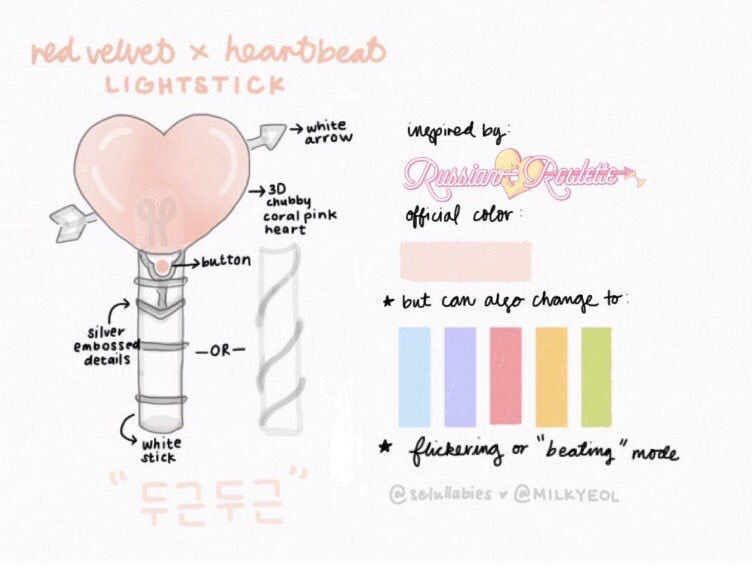 red velvet x heartbeat
LIGHTSTICK
→ white
arrow
→ 3D
chubby
coral pink
heart
→ button
silver
embossed
details
—OR—
white
stick
"두근두근"
inspired by:
Russian Roulette
official color:
★ but can also change to:
★ flickering or "beating" mode
@selullabies ♥ @MILKYEOL